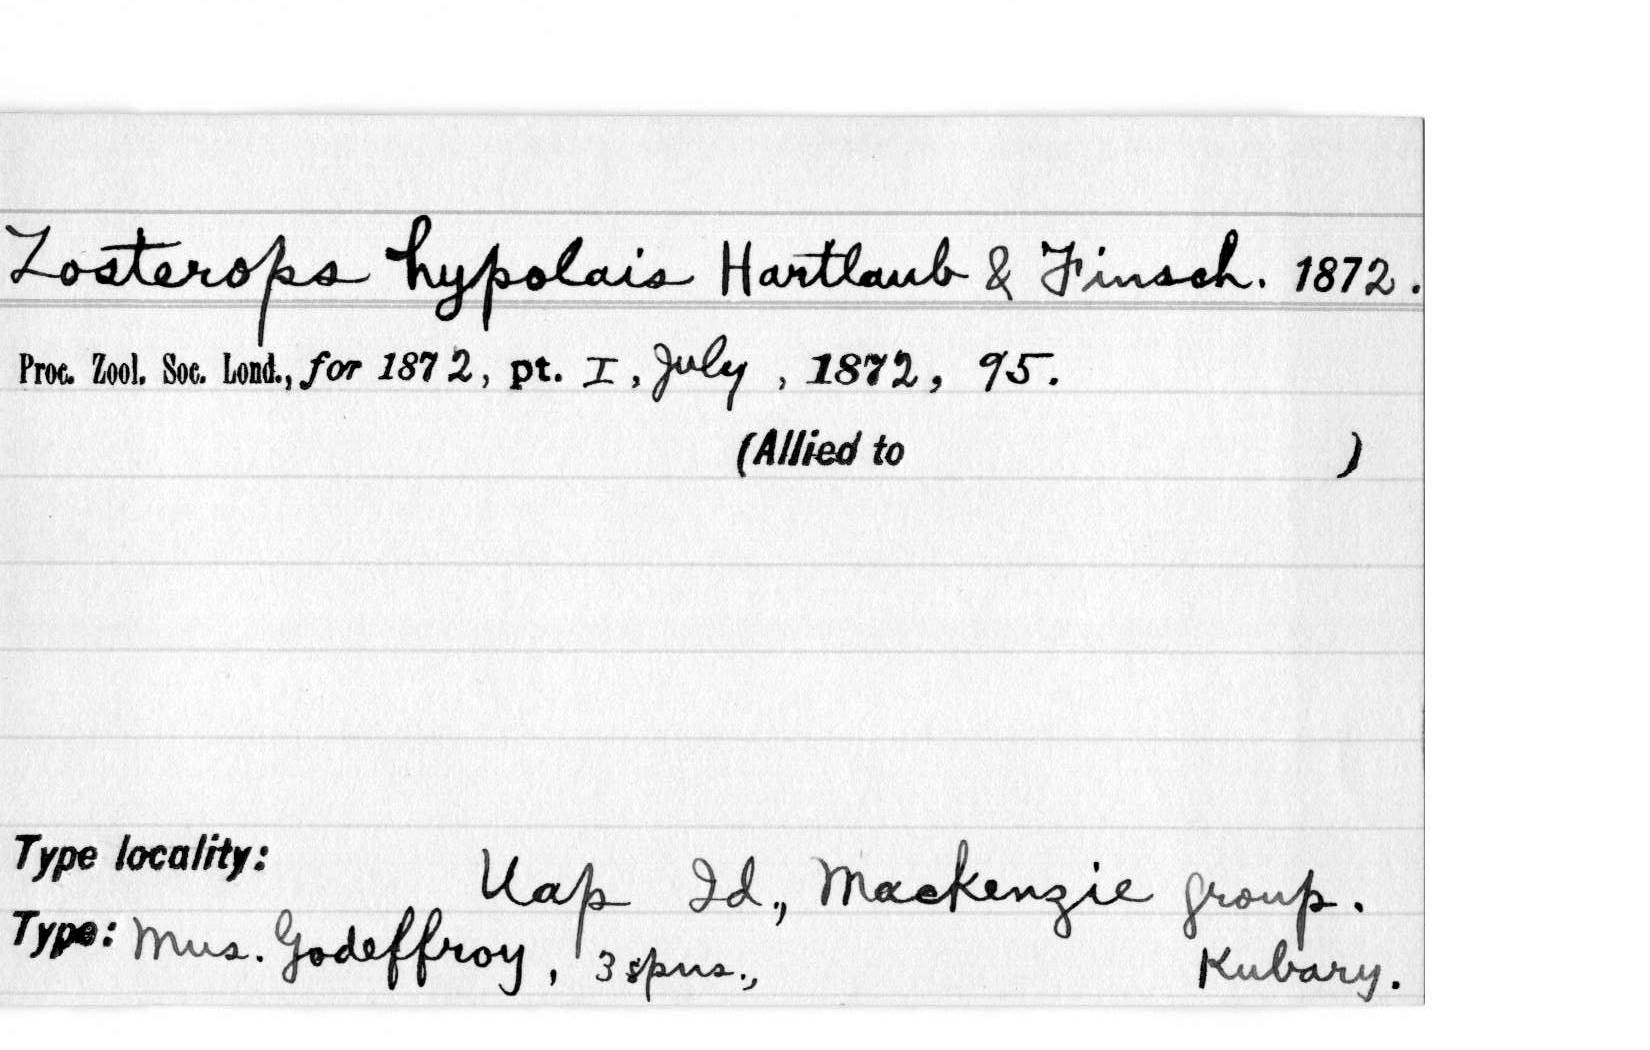 Zosterops hypolais Hartlaub & Finsch. 1872.
Proc. Zool. Soc. Lond., for 1872, pt. I, July, 1872, 95.
(Allied to )
Type locality: Uap Id., Mackenzie group.
Type: Mus. Godeffroy, 3 spns., Kubary.